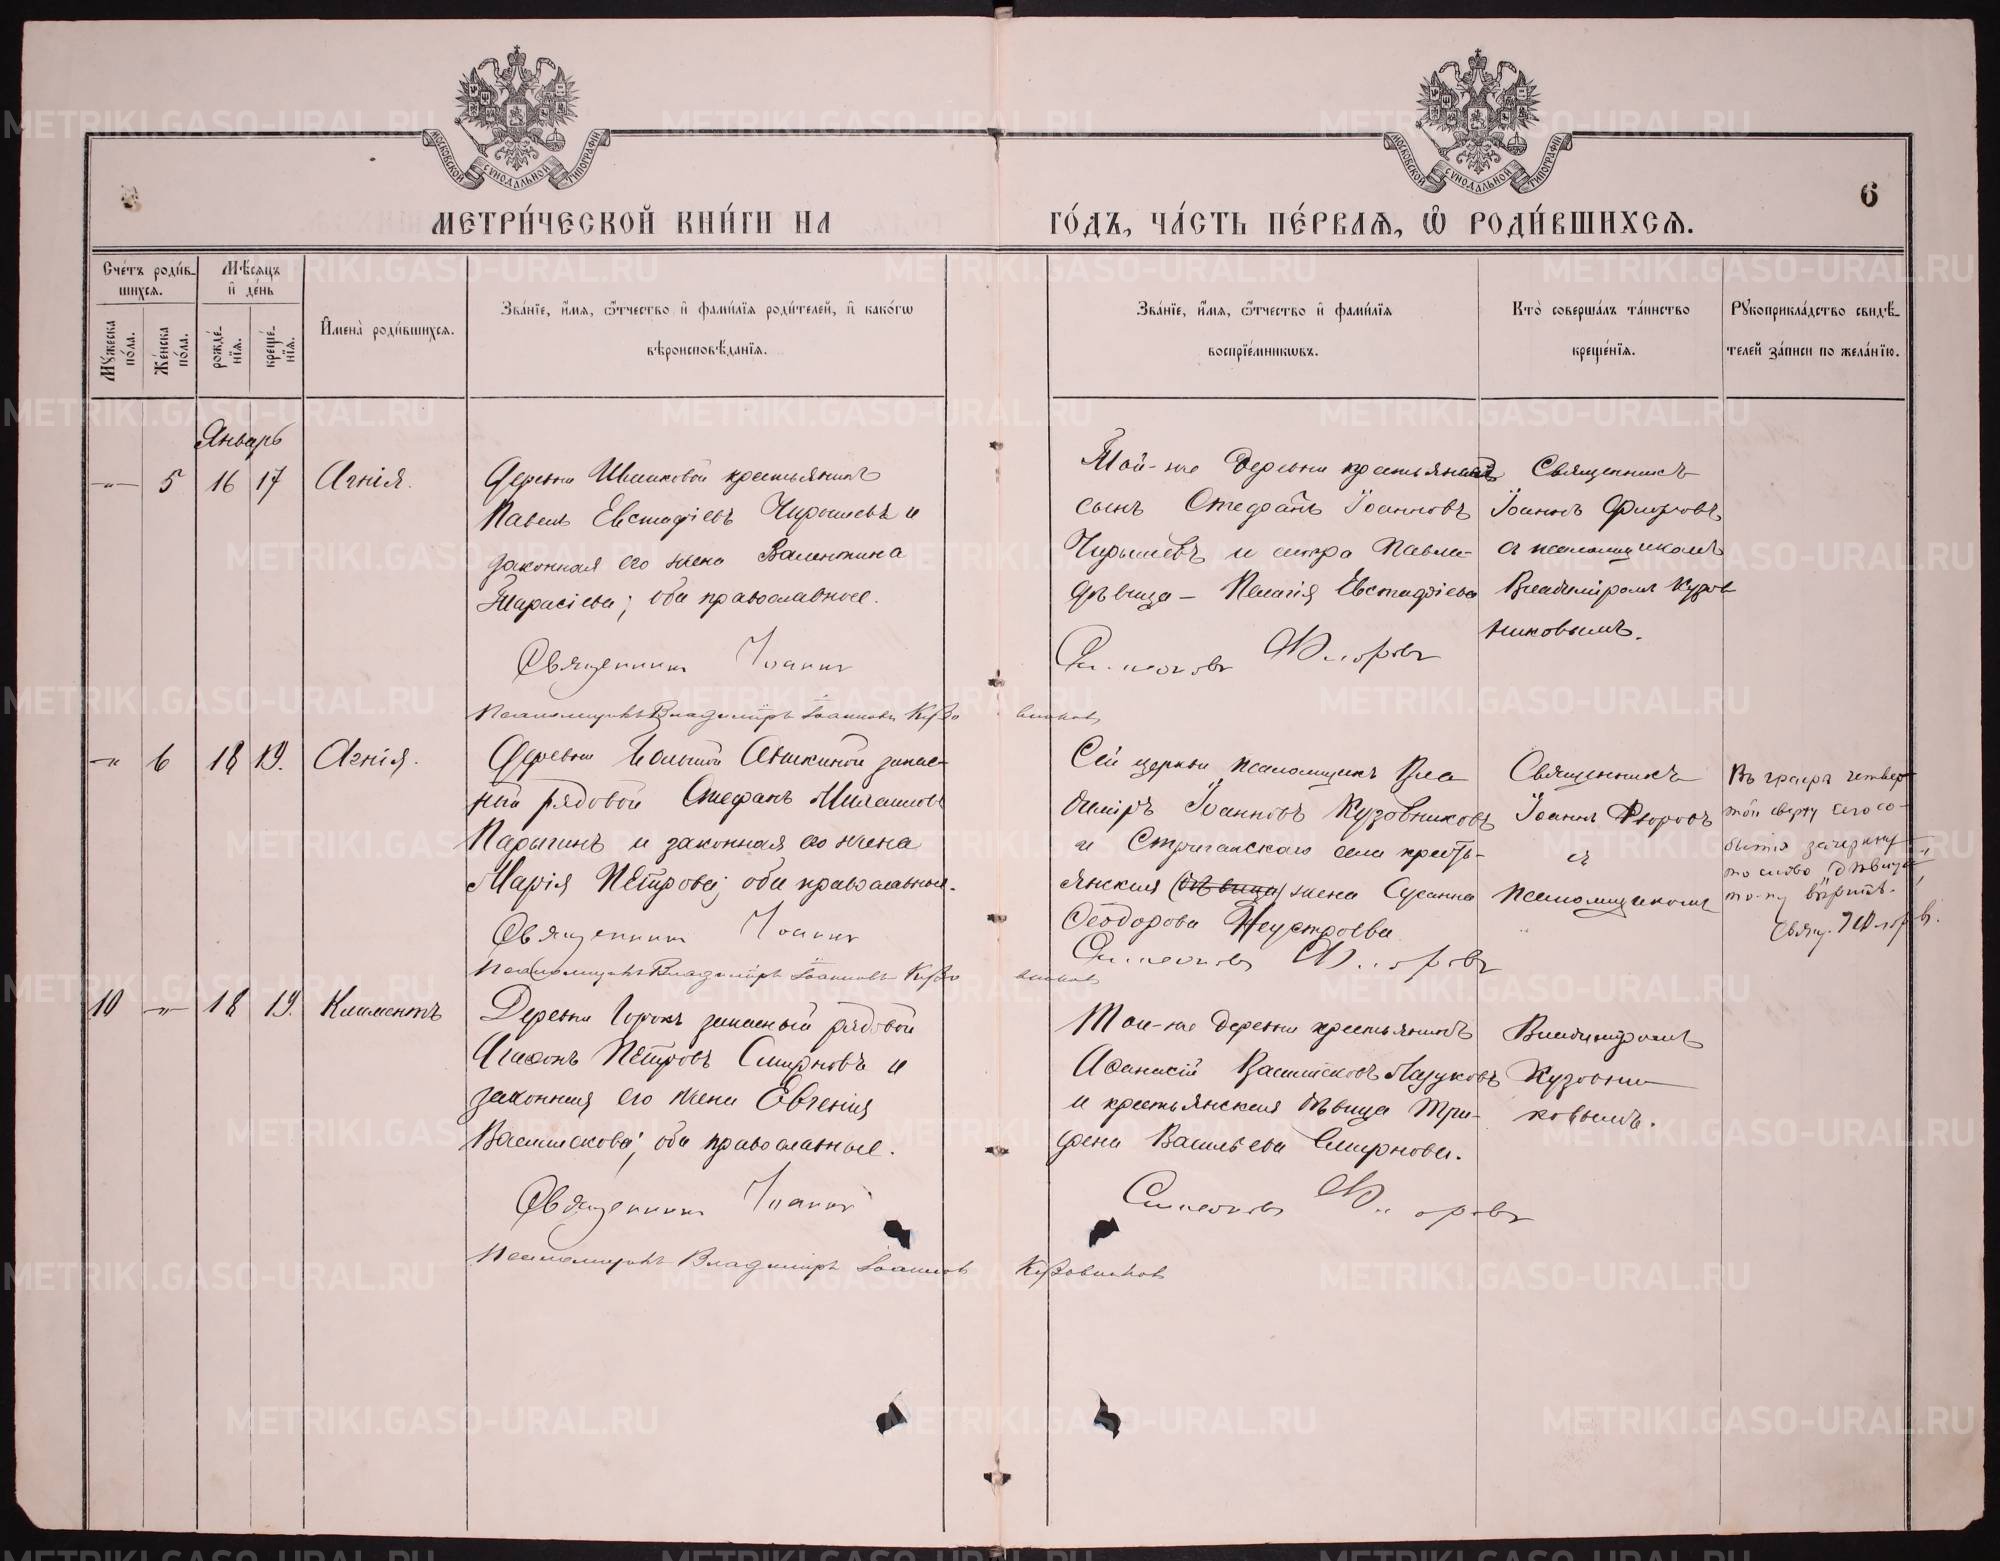 МОСКОВСКОЙ СѴНОДАЛЬНОЙ ТИПОГРАФІИ
МОСКОВСКОЙ СѴНОДАЛЬНОЙ ТИПОГРАФІИ
6
МЕТРИ́ЧЕСКОЙ КНИ́ГИ НА
ГО́ДЪ, ЧА́СТЬ ПЕ́РВАѦ, Ѿ РОДИ́ВШИХСѦ.
Сче́тъ роди́в-
шихсѧ.
Мꙋ́жеска по́ла.
Же́нска по́ла.
Мѣ́сѧцъ
и҆ де́нь
рожде́-нїѧ.
креще́-нїѧ.
И҆мена̀ роди́вшихсѧ.
Зва́нїе, и҆́мѧ, ѻ҆́тчество и҆ фами́лїѧ роди́телей, и҆ како́гѡ
вѣроисповѣ́данїѧ.
Зва́нїе, и҆́мѧ, ѻ҆́тчество и҆ фами́лїѧ
воспрїе́мникѡвъ.
Кто̀ соверша́лъ та́инство
креще́нїѧ.
Рꙋкоприкла́дство свидѣ́-
телей за́писи по жела́нїю.
Январь
5 16 17 Агнія.
Деревни крестьянинъ
Павелъ Евстафіевъ Чирышевъ и
законная его жена Валентина
Тарасіева; оба православные.
Священникъ Іоаннъ
Псаломщикъ Владиміръ Іоанновъ Кузо
Той-же деревни
сынъ Стефанъ Іоанновъ
Чирышевъ и сестра Павла-
дѣвица - Пелагія Евстафіева
Симеоновъ Флоровъ
вниковъ
Священникъ
Іоаннъ Флоровъ
съ псаломщикомъ
Владиміромъ Кузов
никовымъ.
6 18 19. Агнія.
Деревни Большой запас-
ный рядовой Стефанъ
Парыгинъ и законная его жена
Марія Петрова; оба православные.
Священникъ Іоаннъ
Псаломщикъ Владиміръ Іоанновъ Кузо
Сей церкви псаломщикъ Вла
диміръ Іоанновъ Кузовниковъ
и Стриганскаго села кресть-
янская (дѣвица) жена Сусанна
Ѳеодорова Неустроева
Симеоновъ Флоровъ
вниковъ
Священникъ
Іоаннъ Флоровъ
съ
псаломщикомъ
Въ графѣ четвер
той сверху сего со-
бытія зачеркну-
то слово "дѣвица",
вѣрить.
Свящ. Флоровъ.
10 18 19. Климентъ
Деревни Горокъ запасный рядовой
Агаѳонъ Петровъ Смирновъ и
законная его жена Евгенія
Василискова; оба православные.
Священникъ Іоаннъ
Псаломщикъ Владиміръ Іоанновъ
Той-же деревни крестьянинъ
Аѳанасій Василисковъ Лазуковъ
и крестьянская дѣвица Три-
фена Васильева Смирнова.
Симеоновъ Флоровъ
Кузовниковъ
Владиміромъ
Кузовни
ковымъ.
METRIKI.GASO-URAL.RU